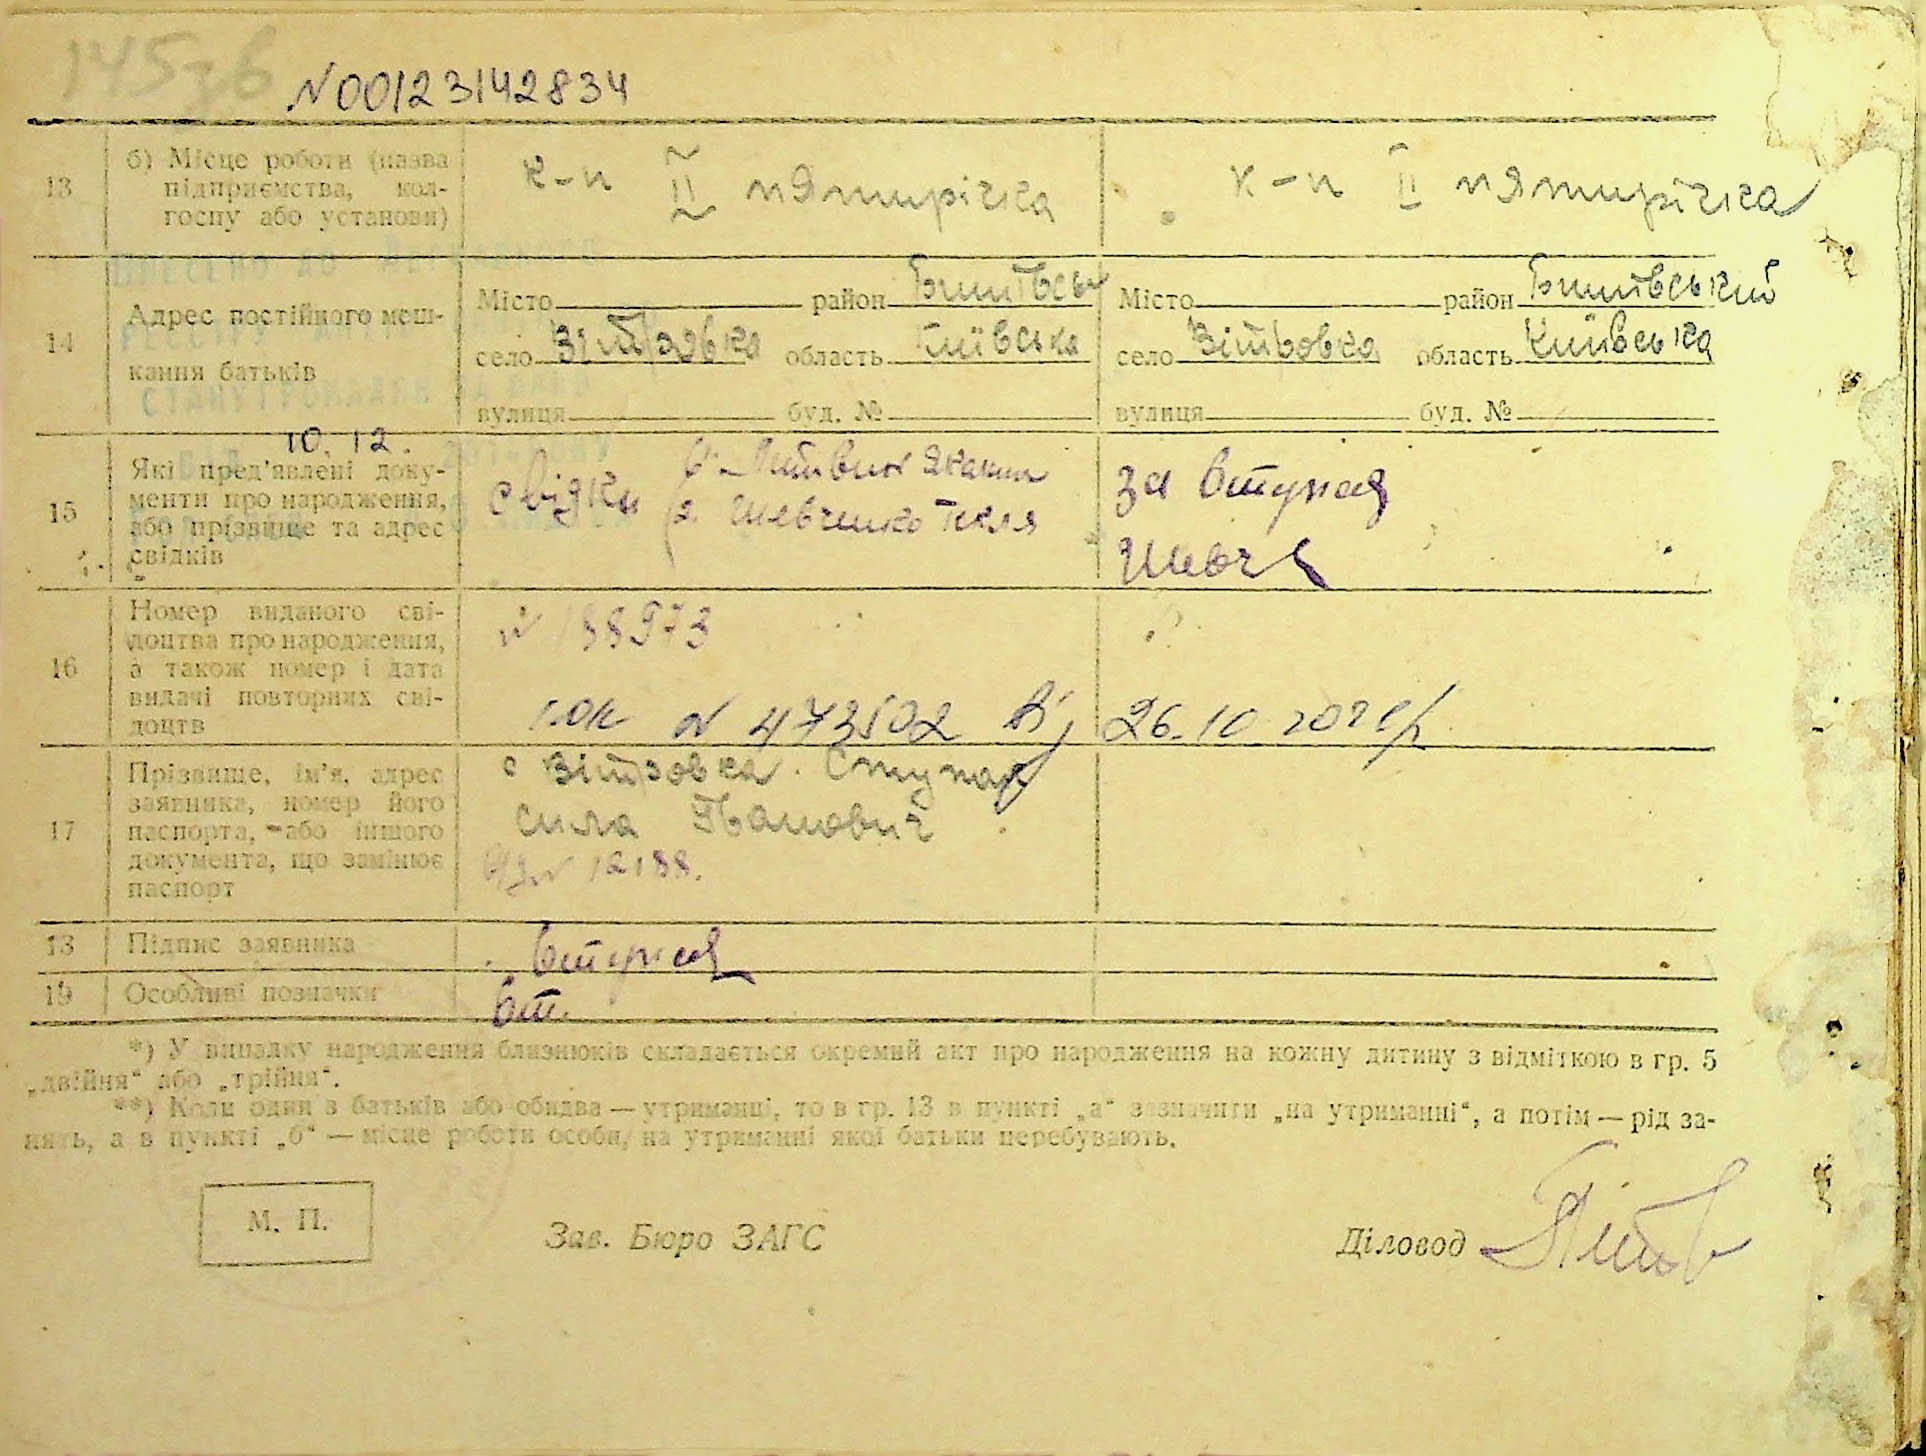 145зв
N00123142834
13 б) Місце роботи (назва підприємства, колгоспу або установи)
к-п II пятирічка
к-п II пятирічка
ВНЕСЕНО ДО ДЕРЖАВНОГО
РЕЄСТРУ АКТІВ
10.12.
14 Адрес постійного мешкання батьків
Місто район
село Вітровка область Київська
вулиця буд. №
Місто район Бишівський
село Вітровка область Київська
вулиця буд. №
15 Які пред'явлені документи про народження, або прізвище та адрес свідків
свідки
Шевченко Текля
за
16 Номер виданого свідоцтва про народження, а також номер і дата видачі повторних свідоцтв
N 138973
N 473502 від 26.10
17 Прізвище, ім'я, адрес заявника, номер його паспорта, або іншого документа, що замінює паспорт
с Вітровка. Ступак
сила Іванович
12188.
18 Підпис заявника
19 Особливі позначки
*) У випадку народження близнюків складається окремий акт про народження на кожну дитину з відміткою в гр. 5
„двійня“ або „трійня“.
**) Коли один з батьків або обидва — утриманці, то в гр. 13 в пункті „а“ зазначити „на утриманні“, а потім — рід за-
нять, а в пункті „б“ — місце роботи особи, на утриманні якої батьки перебувають.
М. П.
Зав. Бюро ЗАГС
Діловод